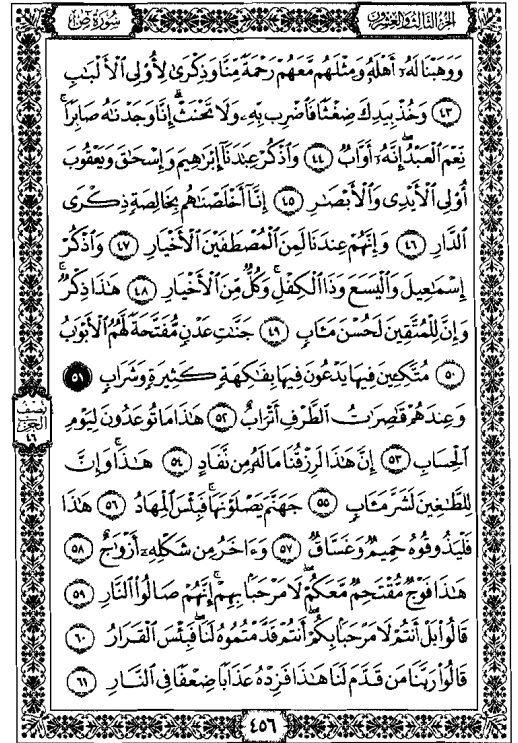 سُورَةُ صٓ
الجُزءُ الثَّالِثُ وَالعِشْرُونَ
وَوَهَبۡنَا لَهُۥٓ أَهۡلَهُۥ وَمِثۡلَهُم مَّعَهُمۡ رَحۡمَةٗ مِّنَّا وَذِكۡرَىٰ لِأُوْلِي ٱلۡأَلۡبَٰبِ
٤٣ وَخُذۡ بِيَدِكَ ضِغۡثٗا فَٱضۡرِب بِّهِۦ وَلَا تَحۡنَثۡۗ إِنَّا وَجَدۡنَٰهُ صَابِرٗاۚ
نِّعۡمَ ٱلۡعَبۡدُ إِنَّهُۥٓ أَوَّابٞ ٤٤ وَٱذۡكُرۡ عِبَٰدَنَآ إِبۡرَٰهِيمَ وَإِسۡحَٰقَ وَيَعۡقُوبَ
أُوْلِي ٱلۡأَيۡدِي وَٱلۡأَبۡصَٰرِ ٤٥ إِنَّآ أَخۡلَصۡنَٰهُم بِخَالِصَةٖ ذِكۡرَى
ٱلدَّارِ ٤٦ وَإِنَّهُمۡ عِندَنَا لَمِنَ ٱلۡمُصۡطَفَيۡنَ ٱلۡأَخۡيَارِ ٤٧ وَٱذۡكُرۡ
إِسۡمَٰعِيلَ وَٱلۡيَسَعَ وَذَا ٱلۡكِفۡلِۖ وَكُلّٞ مِّنَ ٱلۡأَخۡيَارِ ٤٨ هَٰذَا ذِكۡرٞۚ
وَإِنَّ لِلۡمُتَّقِينَ لَحُسۡنَ مَـَٔابٖ ٤٩ جَنَّٰتِ عَدۡنٖ مُّفَتَّحَةٗ لَّهُمُ ٱلۡأَبۡوَٰبُ
٥٠ مُتَّكِـِٔينَ فِيهَا يَدۡعُونَ فِيهَا بِفَٰكِهَةٖ كَثِيرَةٖ وَشَرَابٖ ٥١
وَعِندَهُمۡ قَٰصِرَٰتُ ٱلطَّرۡفِ أَتۡرَابٌ ٥٢ هَٰذَا مَا تُوعَدُونَ لِيَوۡمِ
نصف الحزب ٤٦
ٱلۡحِسَابِ ٥٣ إِنَّ هَٰذَا لَرِزۡقُنَا مَا لَهُۥ مِن نَّفَادٍ ٥٤ هَٰذَاۚ وَإِنَّ
لِلطَّٰغِينَ لَشَرَّ مَـَٔابٖ ٥٥ جَهَنَّمَ يَصۡلَوۡنَهَا فَبِئۡسَ ٱلۡمِهَادُ ٥٦ هَٰذَا
فَلۡيَذُوقُوهُ حَمِيمٞ وَغَسَّاقٞ ٥٧ وَءَاخَرُ مِن شَكۡلِهِۦٓ أَزۡوَٰجٌ ٥٨
هَٰذَا فَوۡجٞ مُّقۡتَحِمٞ مَّعَكُمۡ لَا مَرۡحَبَۢا بِهِمۡۚ إِنَّهُمۡ صَالُواْ ٱلنَّارِ ٥٩
قَالُواْ بَلۡ أَنتُمۡ لَا مَرۡحَبَۢا بِكُمۡۖ أَنتُمۡ قَدَّمۡتُمُوهُ لَنَاۖ فَبِئۡسَ ٱلۡقَرَارُ ٦٠
قَالُواْ رَبَّنَا مَن قَدَّمَ لَنَا هَٰذَا فَزِدۡهُ عَذَابٗا ضِعۡفٗا فِي ٱلنَّارِ ٦١
٤٥٦